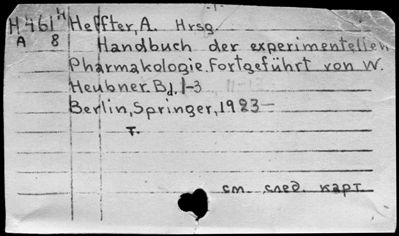 H 461 H Heffter, A. Hrsg.
A 8 Handbuch der experimentellen
Pharmakologie. Fortgeführt von W.
Heubner. Bd. 1-3
Berlin, Springer, 1923-
т.
см. след. карт.